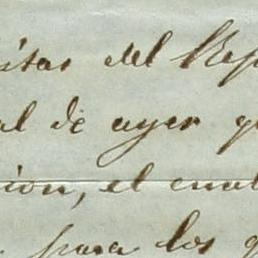 itas del Rep
al de ayer q
ion, el cual
para los q